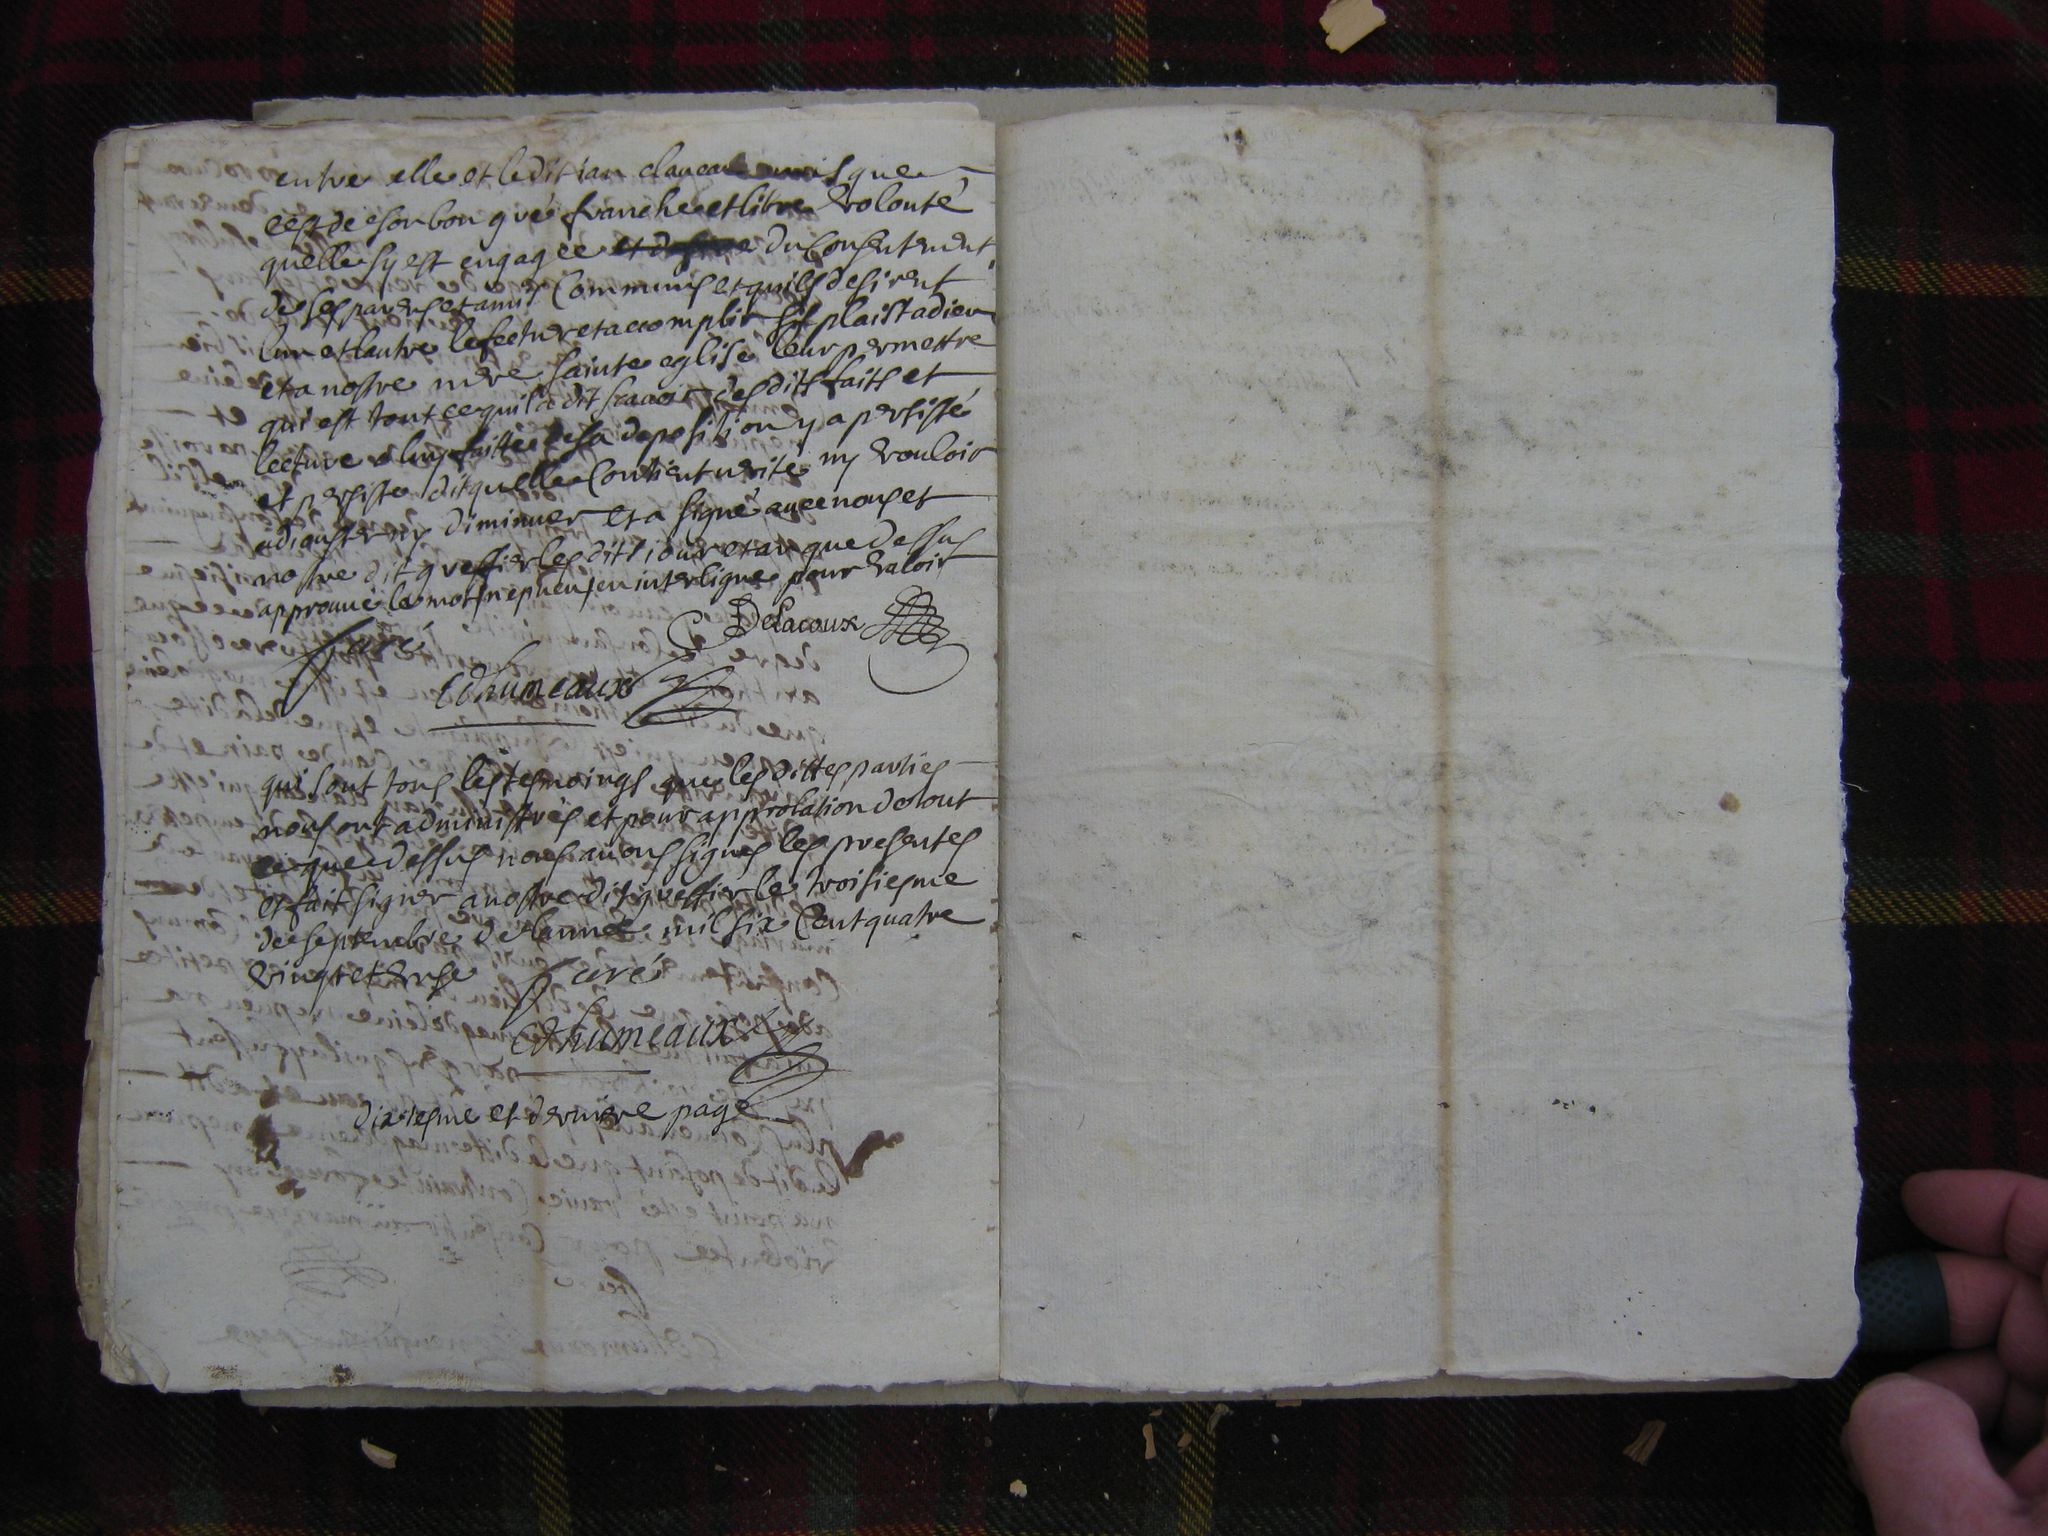 entre elle et ledit jan claueau mais que
cest de son bon gré franche et libre volonté
quelle sy est engagée du consentement
de ses parens et amis communs et quils desirent
lun et lautre leffectuer et accomplir sil plaist a dieu
et a nostre mere sainte eglise leur permettre
qui est tout ce quil a dit scauoir desdits faits et
lecture a luy faitte de sa deposition y a persisté
et persiste dit quelle contient verité ny vouloir
adiouster ny diminuer et a signé auec nous et
nostre dit greffier lesdits iour et an que dessus
approuué le mot nepueu en interligne pour valoir
Delacoux
Edhumeaux
qui sont tous les tesmoings que lesdittes parties
nous ont administrés et pour approbation de tout
ce que dessus nous auons signés les presentes
et fait signer a nostre dit greffier le troisiesme
de septembre de lannée mil six cent quatre
vingt et
Edhumeaux
dixiesme et derniere page